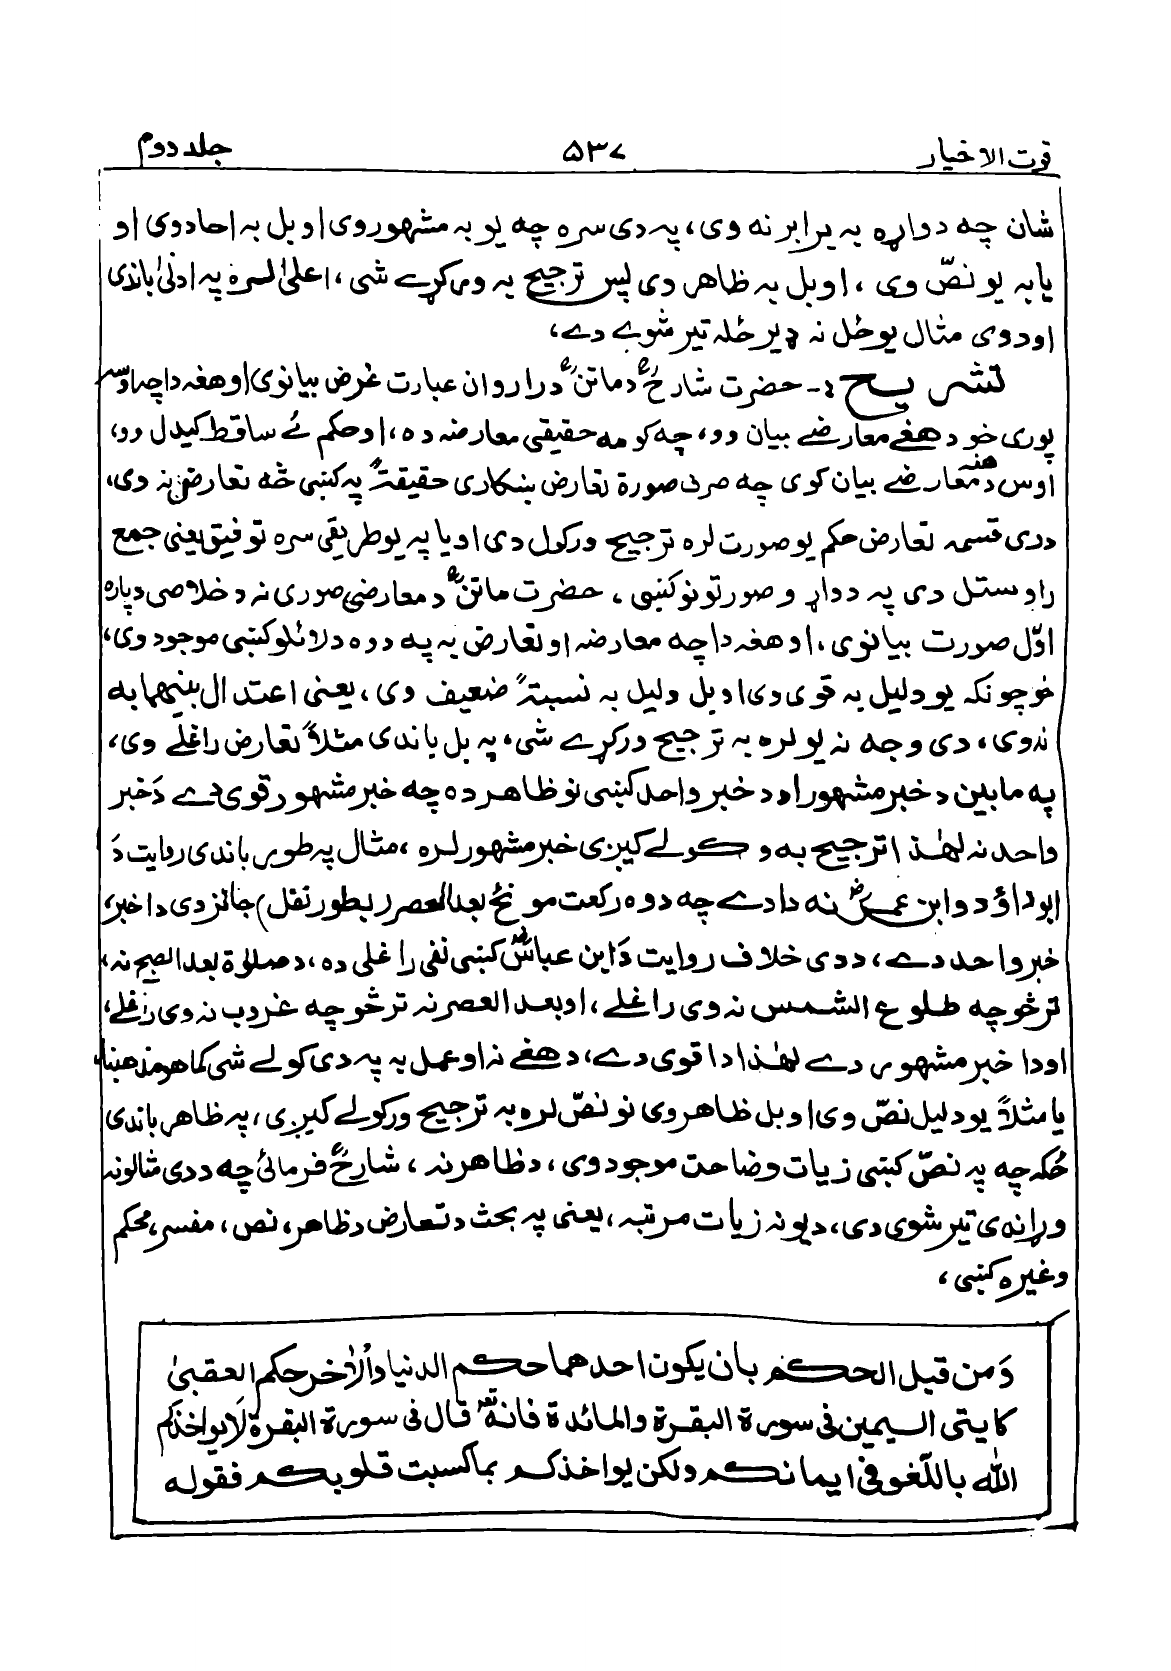 قوت الاخیار ۵۳۷ جلد دوم
شان چه دواړه به برابر نه وی، په دی سره چه یو به مشهور وی او بل به احاد وی او
یا به یو نصّ وی ، او بل به ظاهر وی پس ترجیح به ورکړے شی ، اعلیٰ لره په ادنیٰ باندی
او دوی مثال یوځل نه ډیر ځله تیر شوے دے،
تشریح :- حضرت شارحؒ دماتنؒ دراروان عبارت غرض بیانوی او هغه داچه اوسه
پوری خو د هغے معارضے بیان وو، چه کومه حقیقی معارضه ده ، او حکم ئے ساقط کیدل وو،
اوس د هغه معارضے بیان کوی چه صرف صورةً تعارض ښکاری حقیقتًہ په کښی څه تعارض نه دی،
ددی قسمه تعارض حکم یو صورت لره ترجیح ورکول دی او یا په یو طریقی سره توفیق یعنی جمع
راوستل دی په دواړو صورتونو کښی ، حضرت ماتنؒ د معارضی صوری نه د خلاصی دپاره
اوّل صورت بیانوی ، او هغه داچه معارضه او تعارض به په دوه دلائلو کښی موجود وی،
خو چونکه یو دلیل به قوی وی او بل دلیل به نسبتہً ضعیف وی ، یعنی اعتدال بینهما به
نه وی ، دی وجه نه یو لره به ترجیح ورکړے شی، په بل باندی مثلاً تعارض راغلے وی،
په مابین د خبر مشهور او د خبر واحد کښی نو ظاهر ده چه خبر مشهور قوی دے دَ خبر
واحد نه لهٰذا ترجیح به ورکولے کیږی خبر مشهور لره ، مثال په طور باندی روایت دَ
ابو داؤد د ابن عمرؓ نه دا دے چه دوه رکعت مونځ بعد العصر (بطور نفل) جائز دی دا خبر،
خبر واحد دے ، ددی خلاف روایت دَ ابن عباسؓ کښی نفی راغلی ده ، د صلوٰة بعد الصبح نه،
ترڅو چه طلوع الشمس نه وی راغلے ، او بعد العصر نه ترڅو چه غروب نه وی راغلے،
او دا خبر مشهور دے لهٰذا دا قوی دے ، د هغے نه او عمل به په دی کولے شی کما هو مذهبنا،
یا مثلاً یو دلیل نصّ وی او بل ظاهر وی نو نصّ لره به ترجیح ورکولے کیږی ، په ظاهر باندی
ځکه چه په نصّ کښی زیات وضاحت موجود وی ، د ظاهر نه ، شارحؒ فرمائی چه ددی مثالونه
وړاندی تیر شوی دی ، د یو نه زیات مرتبه ، یعنی په بحث د تعارض د ظاهر ، نص ، مفسر ، محکم
وغیره کښی ،
وَمن قبل الحکم بان یکون احدهما حکم الدنیا والاٰخر حکم العقبیٰ
کایتی الیمین فی سورة البقرة والمائدة فانهٗ قال فی سورة البقرة لَا یواخذکم
اللّٰه باللّغو فی ایمانکم ولکن یواخذکم بما کسبت قلوبکم فقوله